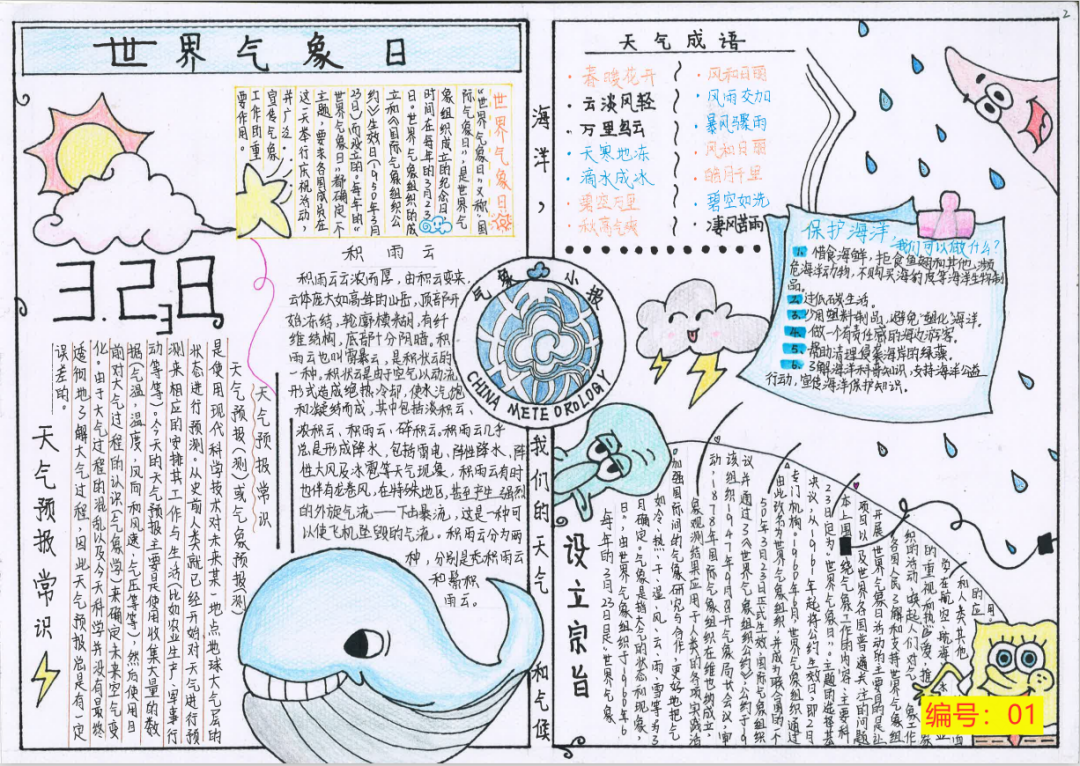 世界气象日
世界气象日
“世界气象日”又称“国
际气象日”,是世界气
象组织成立的纪念日
时间在每年的3月23
日。世界气象组织的成
立和《国际气象组织公
约》生效日(1950年3月
23日)而设立的。每年的“
世界气象日”都确定一个
主题,要求各国成员在
这一天举行庆祝活动,
并广泛
宣传气象
工作的重
要作用。
3.23日
积雨云
积雨云云浓而厚,由积云变来,
云体庞大如高耸的山岳,顶部开
始冻结,轮廓模糊,有纤
维结构,底部十分阴暗。积
雨云也叫雷暴云,是积状云的
一种,积状云是由于空气以动流
形式造成绝热冷却,使水汽饱
和凝结而成,其中包括淡积云、
浓积云、积雨云、碎积云。积雨云几乎
总是形成降水,包括雷电、阵性降水、阵
性大风及冰雹等天气现象,积雨云有时
也伴有龙卷风,在特殊地区,甚至产生强烈
的外旋气流——下击暴流,这是一种可
以使飞机坠毁的气流。积雨云分为两
种,分别是秃积雨云
和鬃积
雨云。
天气预报常识
天气预报(测)或气象预报(测)
是使用现代科学技术对未来某一地点地球大气层的
状态进行预测,从史前人类就已经开始对天气进行预
测来相应的安排其工作与生活(比如农业生产、军事行
动等等)。今天的天气预报主要是使用收集大量的数
据(气温,湿度,风向和风速,气压等等),然后使用目
前对大气过程的认识(气象学)来确定未来空气变
化。由于大气过程的混乱以及今天科学并没有最终
透彻地了解大气过程,因此天气预报总是有一定
误差的。
天气预报常识
海洋,
气象小报
CHINA METEOROLOGY
我们的天气
和气候
天气成语
·春暖花开
·云淡风轻
·万里乌云
·天寒地冻
·滴水成冰
·碧空万里
·秋高气爽
·风和日丽
·风雨交加
·暴风骤雨
·风和日丽
·皓月千里
·碧空如洗
·凄风苦雨
保护海洋,我们可以做什么?
1.惜食海鲜,拒食鱼翅和其他濒
危海洋动物,不购买海豹皮等海洋生物制
品。
2.过低碳生活。
3.少用塑料制品,避免“塑化”海洋。
4.做一个有责任感的海边游客。
5.帮助清理侵袭海岸的绿藻。
6.了解海洋科普知识,支持海洋公益
行动,宣传海洋保护知识。
设立宗旨
每年的3月23日是“世界气象
日”。由世界气象组织于1960年6
月确定。气象是指大气的状态和现象,
如冷、热、干、湿、风、云、雨、雪等。为了
加强国际间的气象研究与合作,更好地把气
象观测结果应用于人类的各项实践活
动,1878年国际气象组织在维也纳成立,
该组织1947年9月召开气象局长会议,审
议并通过了《世界气象组织公约》。公约于19
50年3月23日正式生效,国际气象组织
由此改名为世界气象组织,并成为联合国的一个
专门机构。1960年6月,世界气象组织通过
决议,从1961年起将公约生效日,即3月
23日定为“世界气象日”。主题的选择基
绕气象工作的内容、主要科
项目以及世界各国普遍关注的问题
开展世界气象日活动的主要目的是让
各国人民了解和支持世界气象组
织的活动,唤起人们对气象工作
的重视和热爱,推
编号:01
2